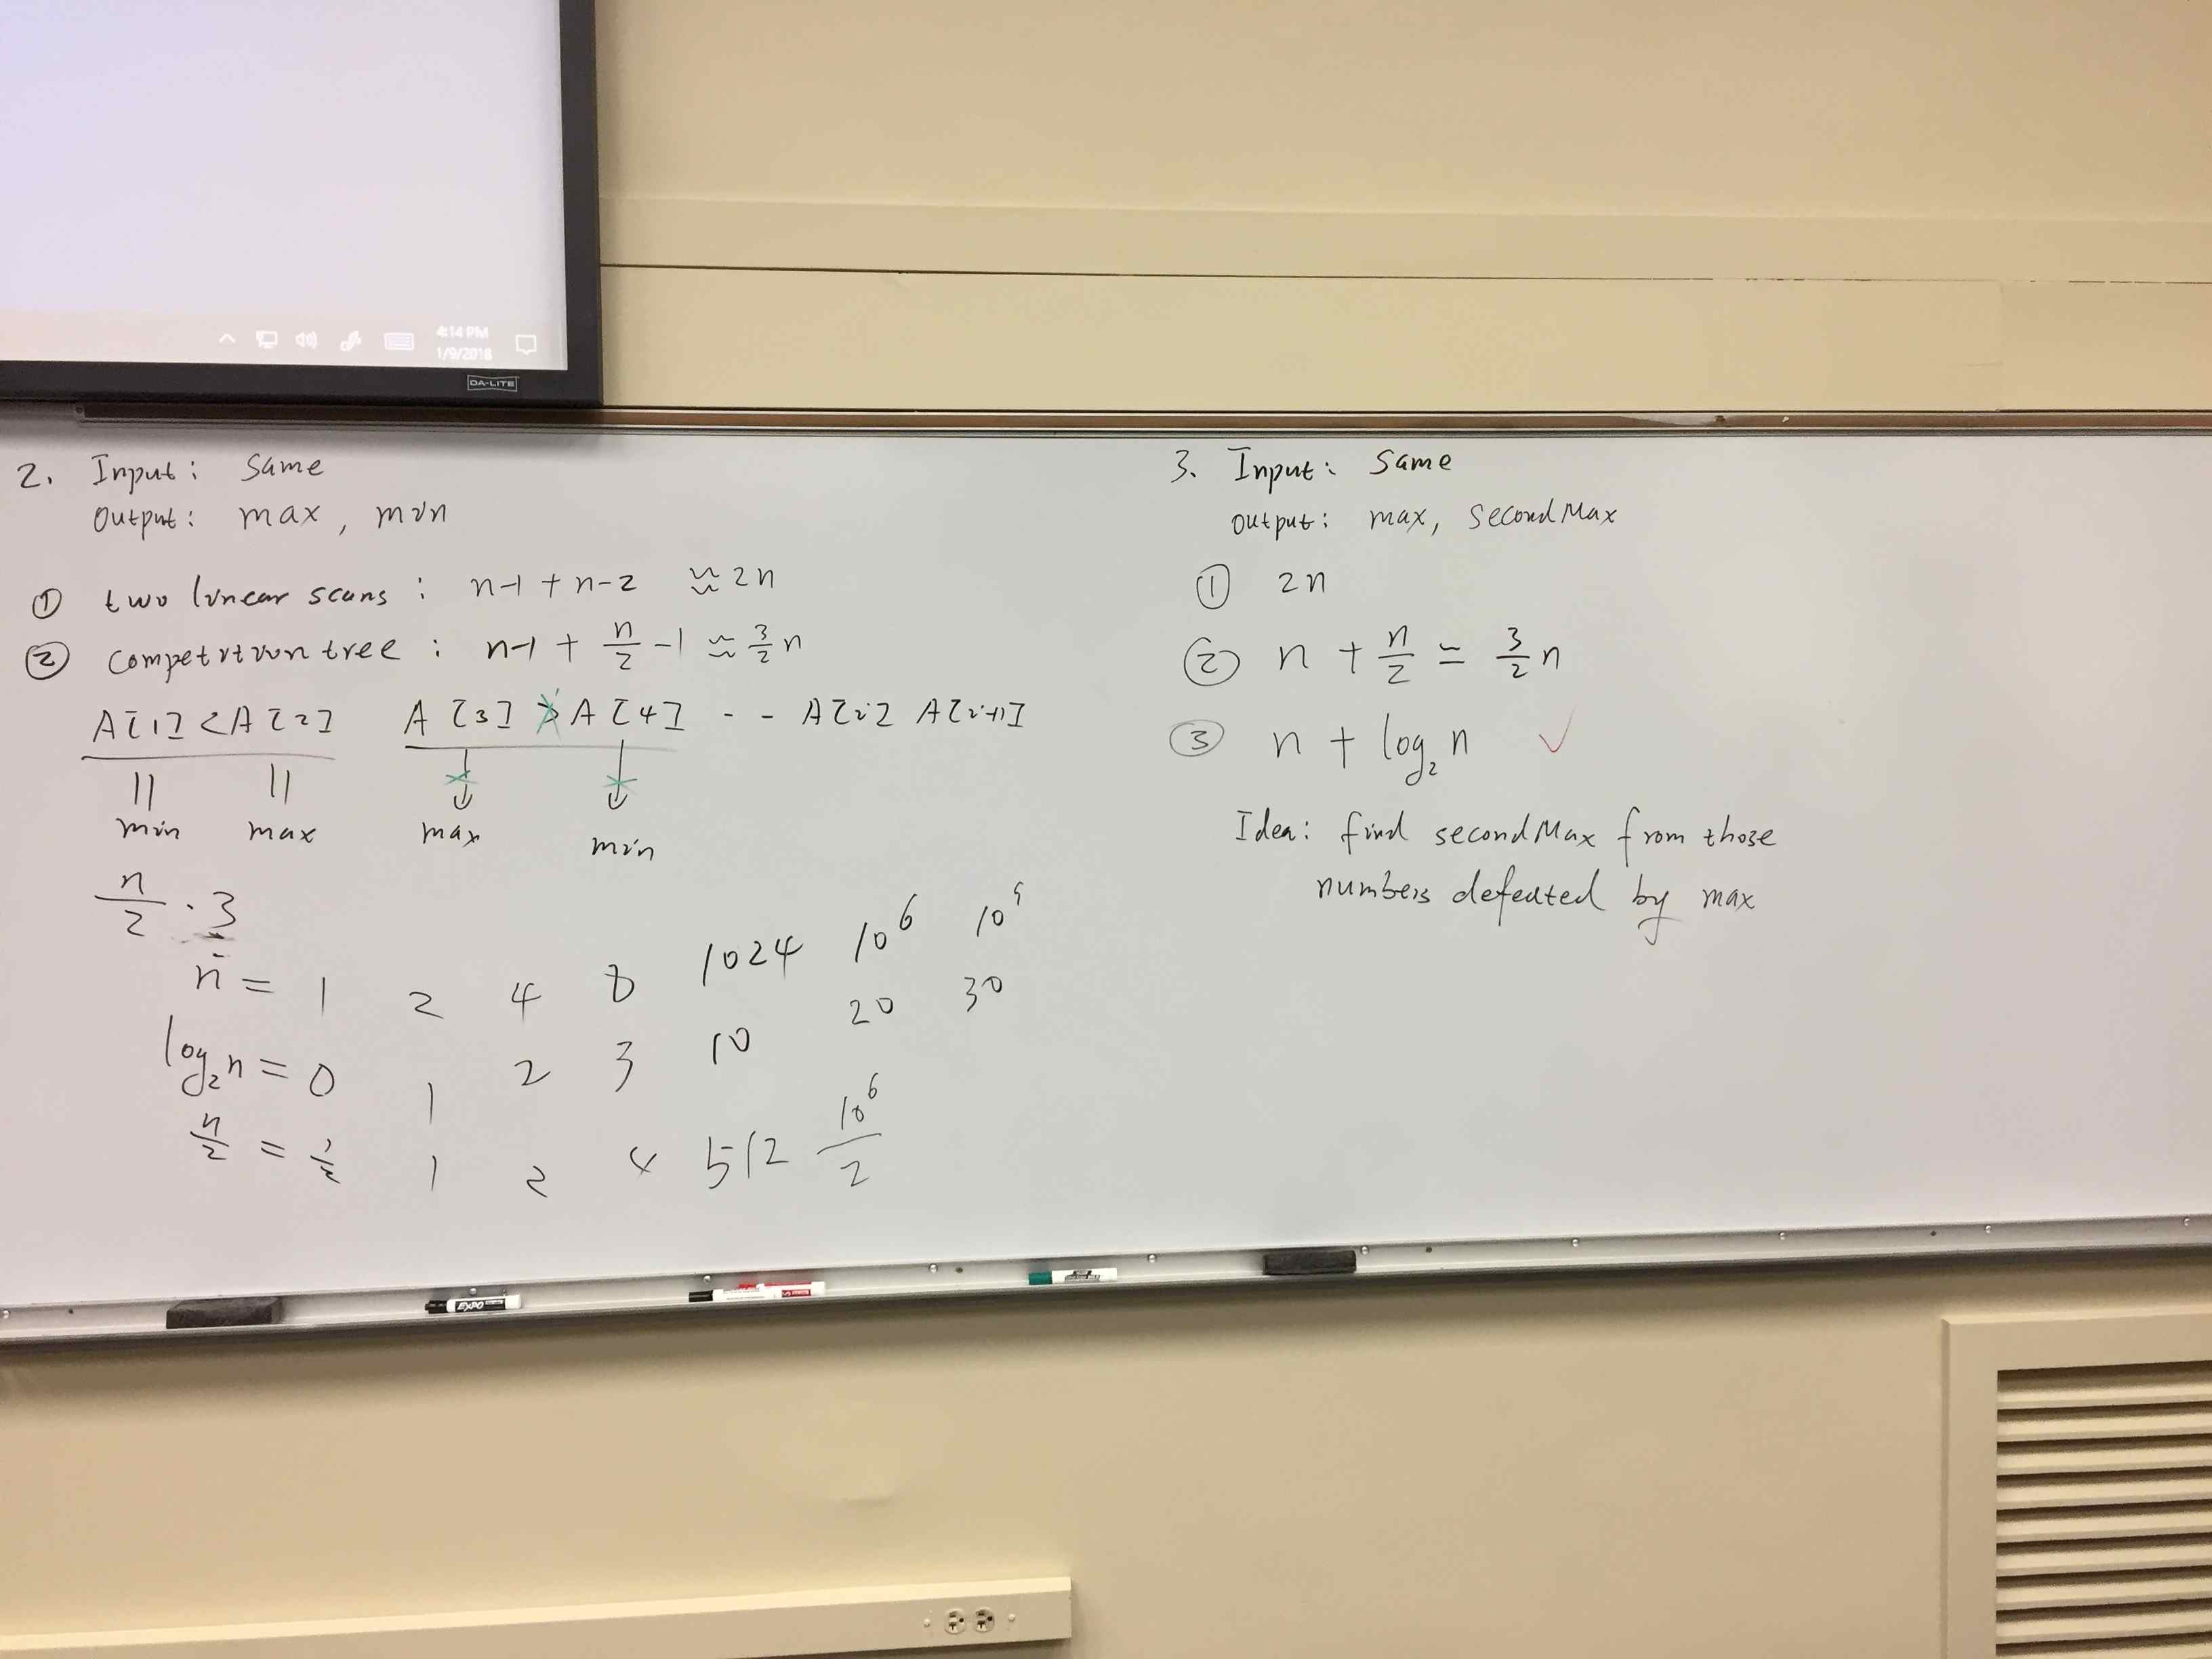 4:14 PM
1/9/2018
DA-LITE
2. Input: Same
Output: max, min
① two linear scans: n-1 + n-2 ≈ 2n
② competition tree: n-1 + n/2 - 1 ≈ 3/2 n
A[1] < A[2] A[3] > A[4] - - A[i] A[i+1]
|| ||
min max max min
n/2 · 3
n = 1 2 4 8 1024 10^6 10^9
log₂n = 0 1 2 3 10 20 30
n/2 = 1/2 1 2 4 512 10^6/2
3. Input: Same
Output: max, secondMax
① 2n
② n + n/2 = 3/2 n
③ n + log₂n ✓
Idea: find secondMax from those
numbers defeated by max
EXPO